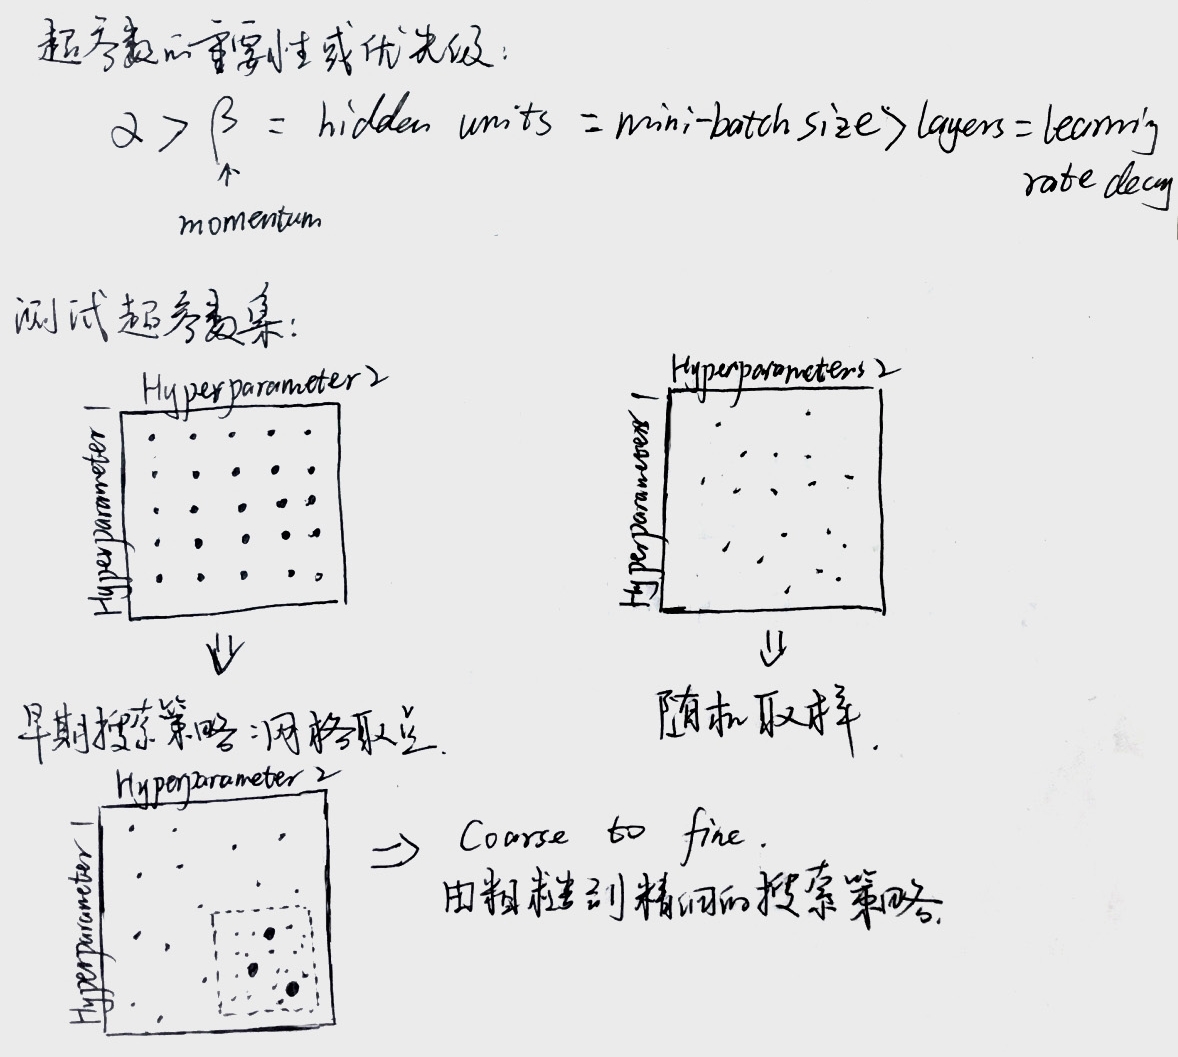 超参数的重要性或优先级:
α > β = hidden units = mini-batch size > layers = learning
rate decay
↑
momentum
测试超参数集:
Hyperparameter 2
Hyperparameter 1
Hyperparameters 2
Hyperparameters 1
⇓
⇓
早期搜索策略:网格取点.
随机取样.
Hyperparameter 2
Hyperparameter 1
⇒ Coarse to fine.
由粗糙到精细的搜索策略.